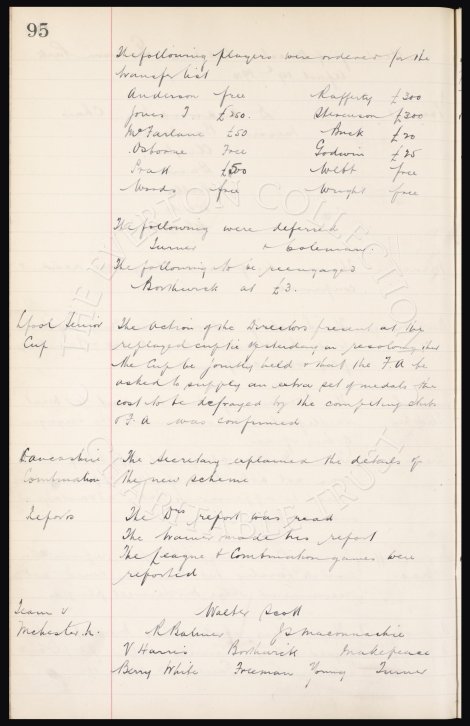 95
The following players were ordered for the
transfer list
Anderson free Rafferty £300
Jones T £250. Stevenson £300
McFarlane £50 Buck £20
Osborne Free Godwin £25
Pratt £50 Webb free
Woods free Wright free
The following were deferred
Turner & Coleman.
The following to be reengaged
Borthwick at £3.
Lpool Senior Cup
The action of the Directors present at the
replayed cup tie yesterday in resolving that
the Cup be jointly held & that the F.A be
asked to supply an extra set of medals the
cost to be defrayed by the competing clubs
& F.A was confirmed
Lancashire Combination
The Secretary explained the details of
the new scheme
Reports
The Drs report was read
The trainer made his report
The League & Combination games were
reported
Team v
Mchester U.
Walter Scott
R Balmer JS Maconnachie
V Harris Borthwick Makepeace
Berry White Freeman Young Turner
THE EVERTON COLLECTION
CHARITABLE TRUST